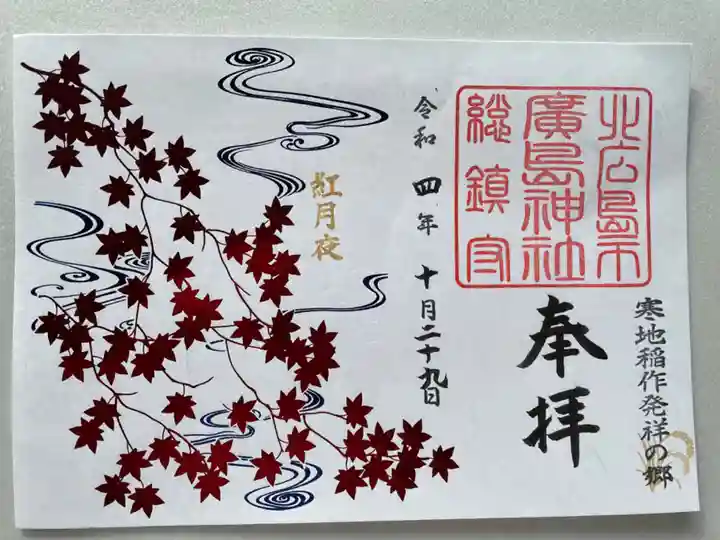 北広島市
廣島神社
総鎮守
寒地稲作発祥の郷
奉拝
令和四年十月二十九日
紅月夜